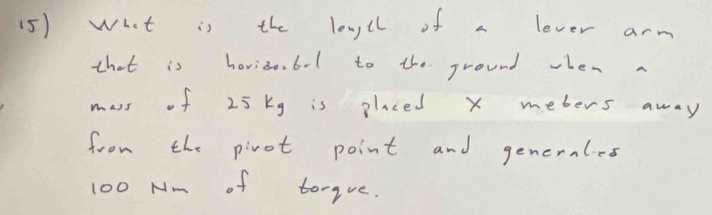 15) What is the length of a lever arm
that is horizontal to the ground when a
mass of 25 kg is placed x meters away
from the pivot point and generates
100 Nm of torque.